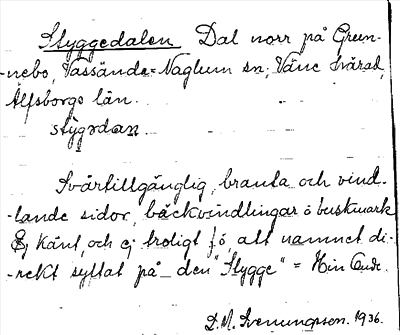 Styggedalen Dal norr på Grun-
-nebo, Vassända-Naglum sn, Väne härad,
Älfsborgs län.
stygədan.
Svårtillgänglig, branta och vind-
-lande sidor, bäckvindlingar ö buskmark
Ej känt, och ej troligt f.ö, att namnet di-
-rekt syftat på den "Stygge" = Hin Onde.
D.M. Svenungsson. 1936.